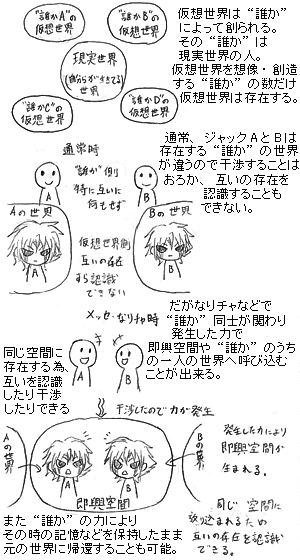 “誰かA”の
仮想世界
“誰かB”の
仮想世界
現実世界
(自分が生きてる)
世界
“誰かC”の
仮想世界
“誰かD”の
仮想世界
仮想世界は“誰か”
によって創られる。
その“誰か”は
現実世界の人。
仮想世界を想像・創造
する“誰か”の数だけ
仮想世界は存在する。
通常、ジャックAとBは
存在する“誰か”の世界
が違うので干渉することは
おろか、互いの存在を
認識することも
できない。
通常時
“誰か”側
特に互いに
何もせず
A
B
Aの世界
Bの世界
仮想世界側
互いの存在
すら認識
できない
A
B
だがなりチャなどで
“誰か”同士が関わり
発生した力で
即興空間や“誰か”のうち
の一人の世界へ呼び込む
ことが出来る。
メッセ・なりチャ時
同じ空間に
存在する為、
互いを認識
したり干渉
したりできる
A
B
干渉したので力が発生
Aの世界
Bの世界
A
B
即興空間
発生した力により
即興空間が
生まれる。
同じ空間に
放り込まれるため
互いの存在を認識
できる。
また“誰か”の力により
その時の記憶などを保持したまま
元の世界に帰還することも可能。